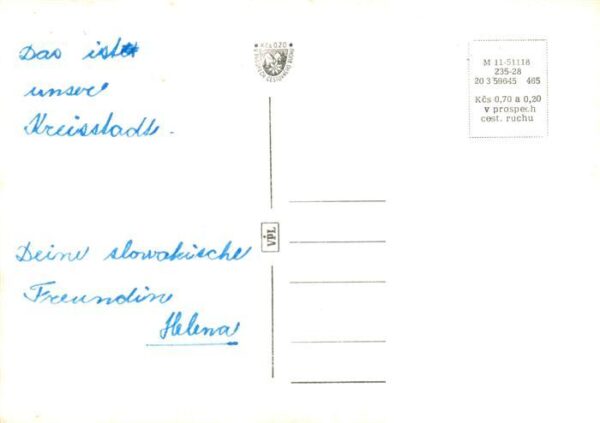 Das ist
unsere
Kreisstadt.
Deine slowakische
Freundin
Helena
Kčs 0,20
VPL
M 11-51118
235-28
20 3 59645 465
Kčs 0,70 a 0,20
v prospech
cest. ruchu